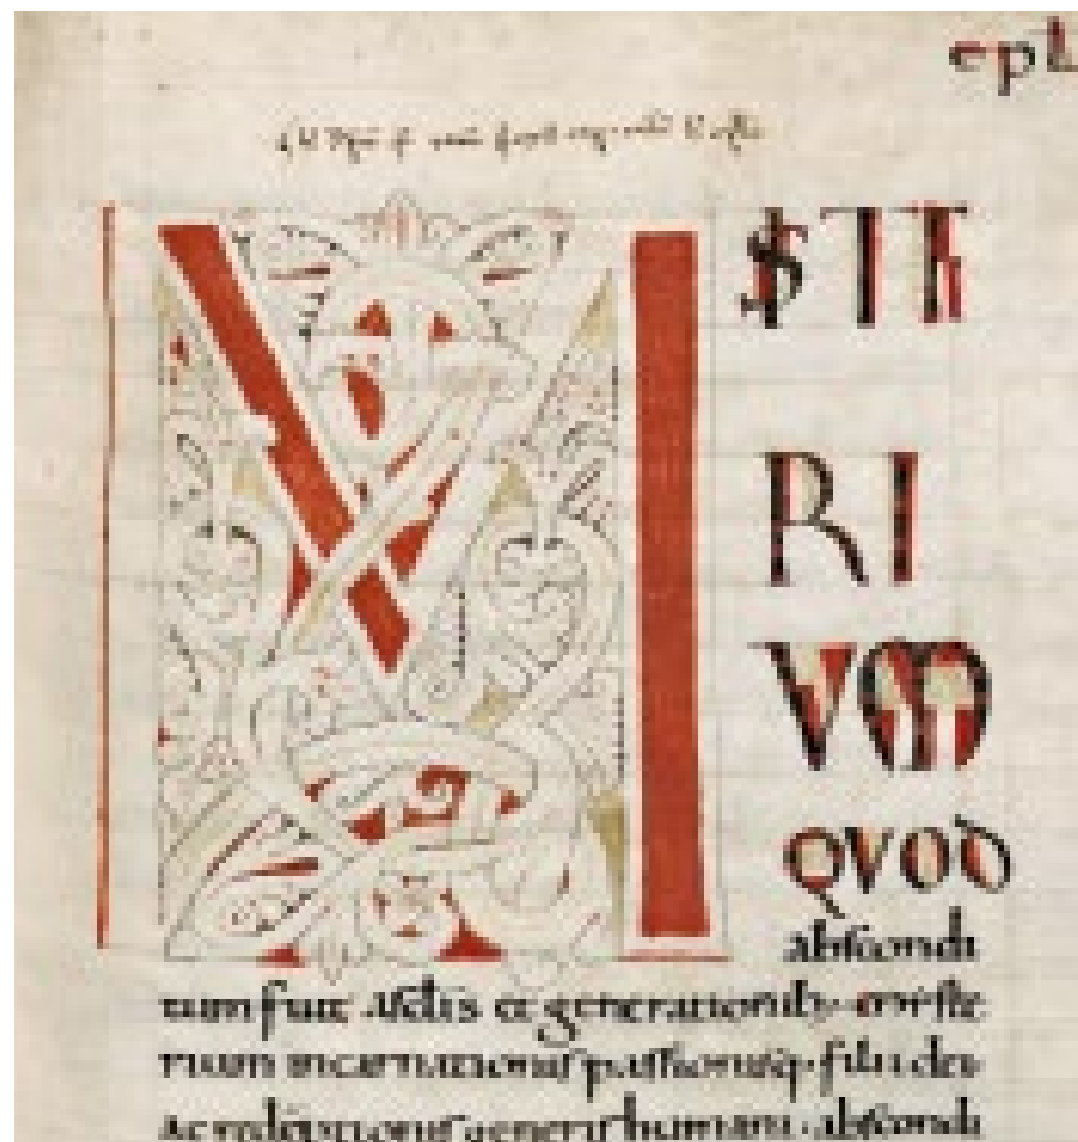 epł
MI STE
RI
VM
QVOD
abscondi
tum fuit a sclis et generationib; miste
rium incarnationis passionisq; filii dei
ac redẽptionis generis humani · abscondi